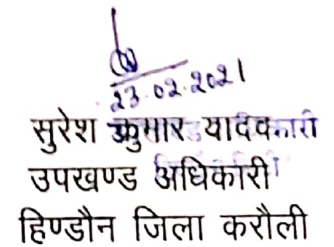 23.02.2021
सुरेश कुमार यादव
उपखण्ड अधिकारी
हिण्डौन जिला करौली